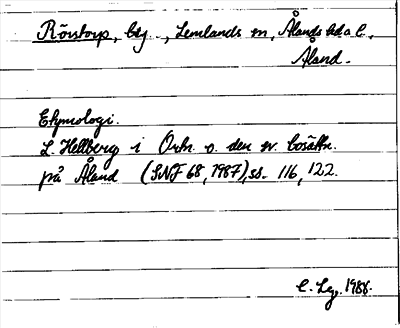 Rörstorp, bg., Lemlands sn, Ålands hd o l.
Åland.
Etymologi.
L. Hellberg i Ortn. o. den sv. bosättn.
på Åland (SNF 68, 1987), ss. 116, 122.
1988.